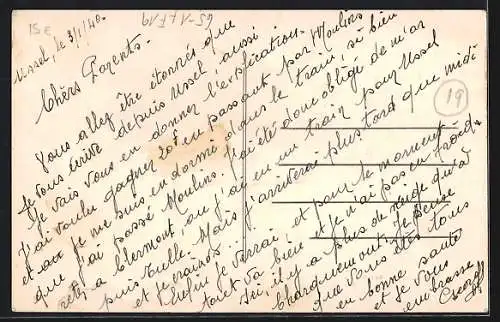 15€
65-1 FF19
19
Ussel, le 3/1/40.
Chèrs Parents.
Vous allez être étonnés que
je vous écrive depuis Ussel aussi
Je vais vous en donner l'explication.
J'ai voulu gagner 20f en passant par Moulins
et aux je me suis en dormi dans le train, si bien
que j'ai passé Moulins. J'ai été donc obligé de m'ar
rêter à Clermont, ou j'ai eu un train pour Ussel
puis Tulle Mais j'arriverai plus tard que midi
et je crains...
Enfin je verrai, et pour le moment
tout va bien et je n'ai pas eu froid.
Ici, il y a plus de neige qu'à
Je pense
que vous êtes tous
en bonne santé
et je vous
embrasse
Georges